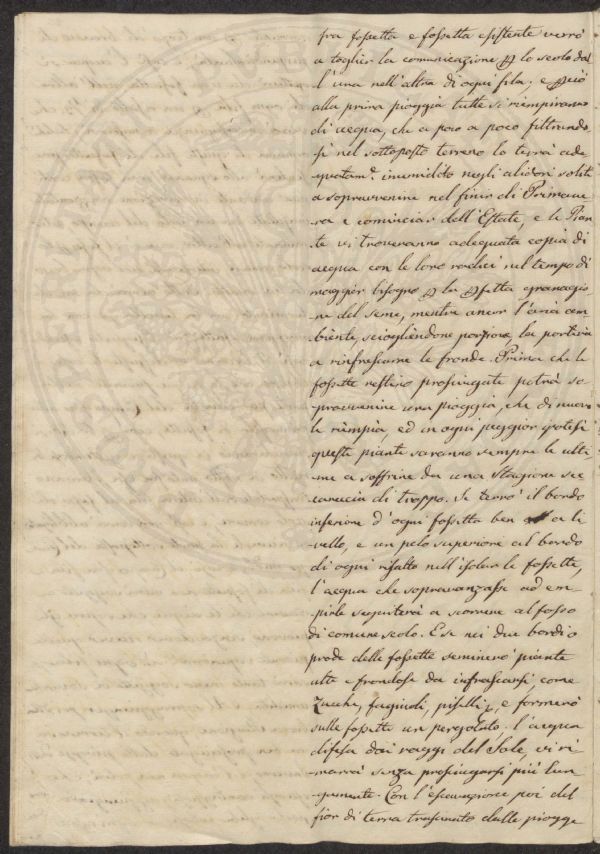 fra fossetta e fossetta esistente verrò
a toglier la comunicazione p lo scolo dal
l'una nell'altra di ogni fila: e pciò
alla prima pioggia tutte si riempiranno
di acqua, che a poco a poco filtrando
si nel sottoposto terreno lo terrà ade
quatam.e inumidito negli alidori soliti
a sopravvenire nel finir di Primave
ra e cominciar dell'Estate, e le Pian
te vi troveranno adequata copia di
acqua con le loro radici nel tempo di
maggior bisogno p la pfetta granagio
ne del seme, mentre ancor l'aria am
biente, sciogliendone porzione, la porterà
a rinfrescarne le fronde. Prima che le
fossette restino prosciugate potrà so
pravvenire una pioggia, che di nuovo
le riempia, ed in ogni peggior ipotesi
queste piante saranno sempre le ulti
me a soffrire da una Stagione sec
caneccia di troppo. Se terrò il bordo
inferiore d'ogni fossetta ben a li
vello, e un pelo superiore al bordo
di ogni risalto nell'isolar le fossette,
l'acqua che sopravanzasse ad em-
pirle seguiterà a scorrere al fosso
di comune scolo. E se nei due bordi o
prode delle fossette seminerò piante
alte e frondose da infrascarsi, come
Zucche, fagiuoli, piselli, e formerò
sulle fossette un pergolato: l'acqua
difesa dai raggi del Sole, vi ri-
marrà senza prosciugarsi più lun-
gamente. Con l'escavazione poi del
fior di terra trascinato dalle piogge